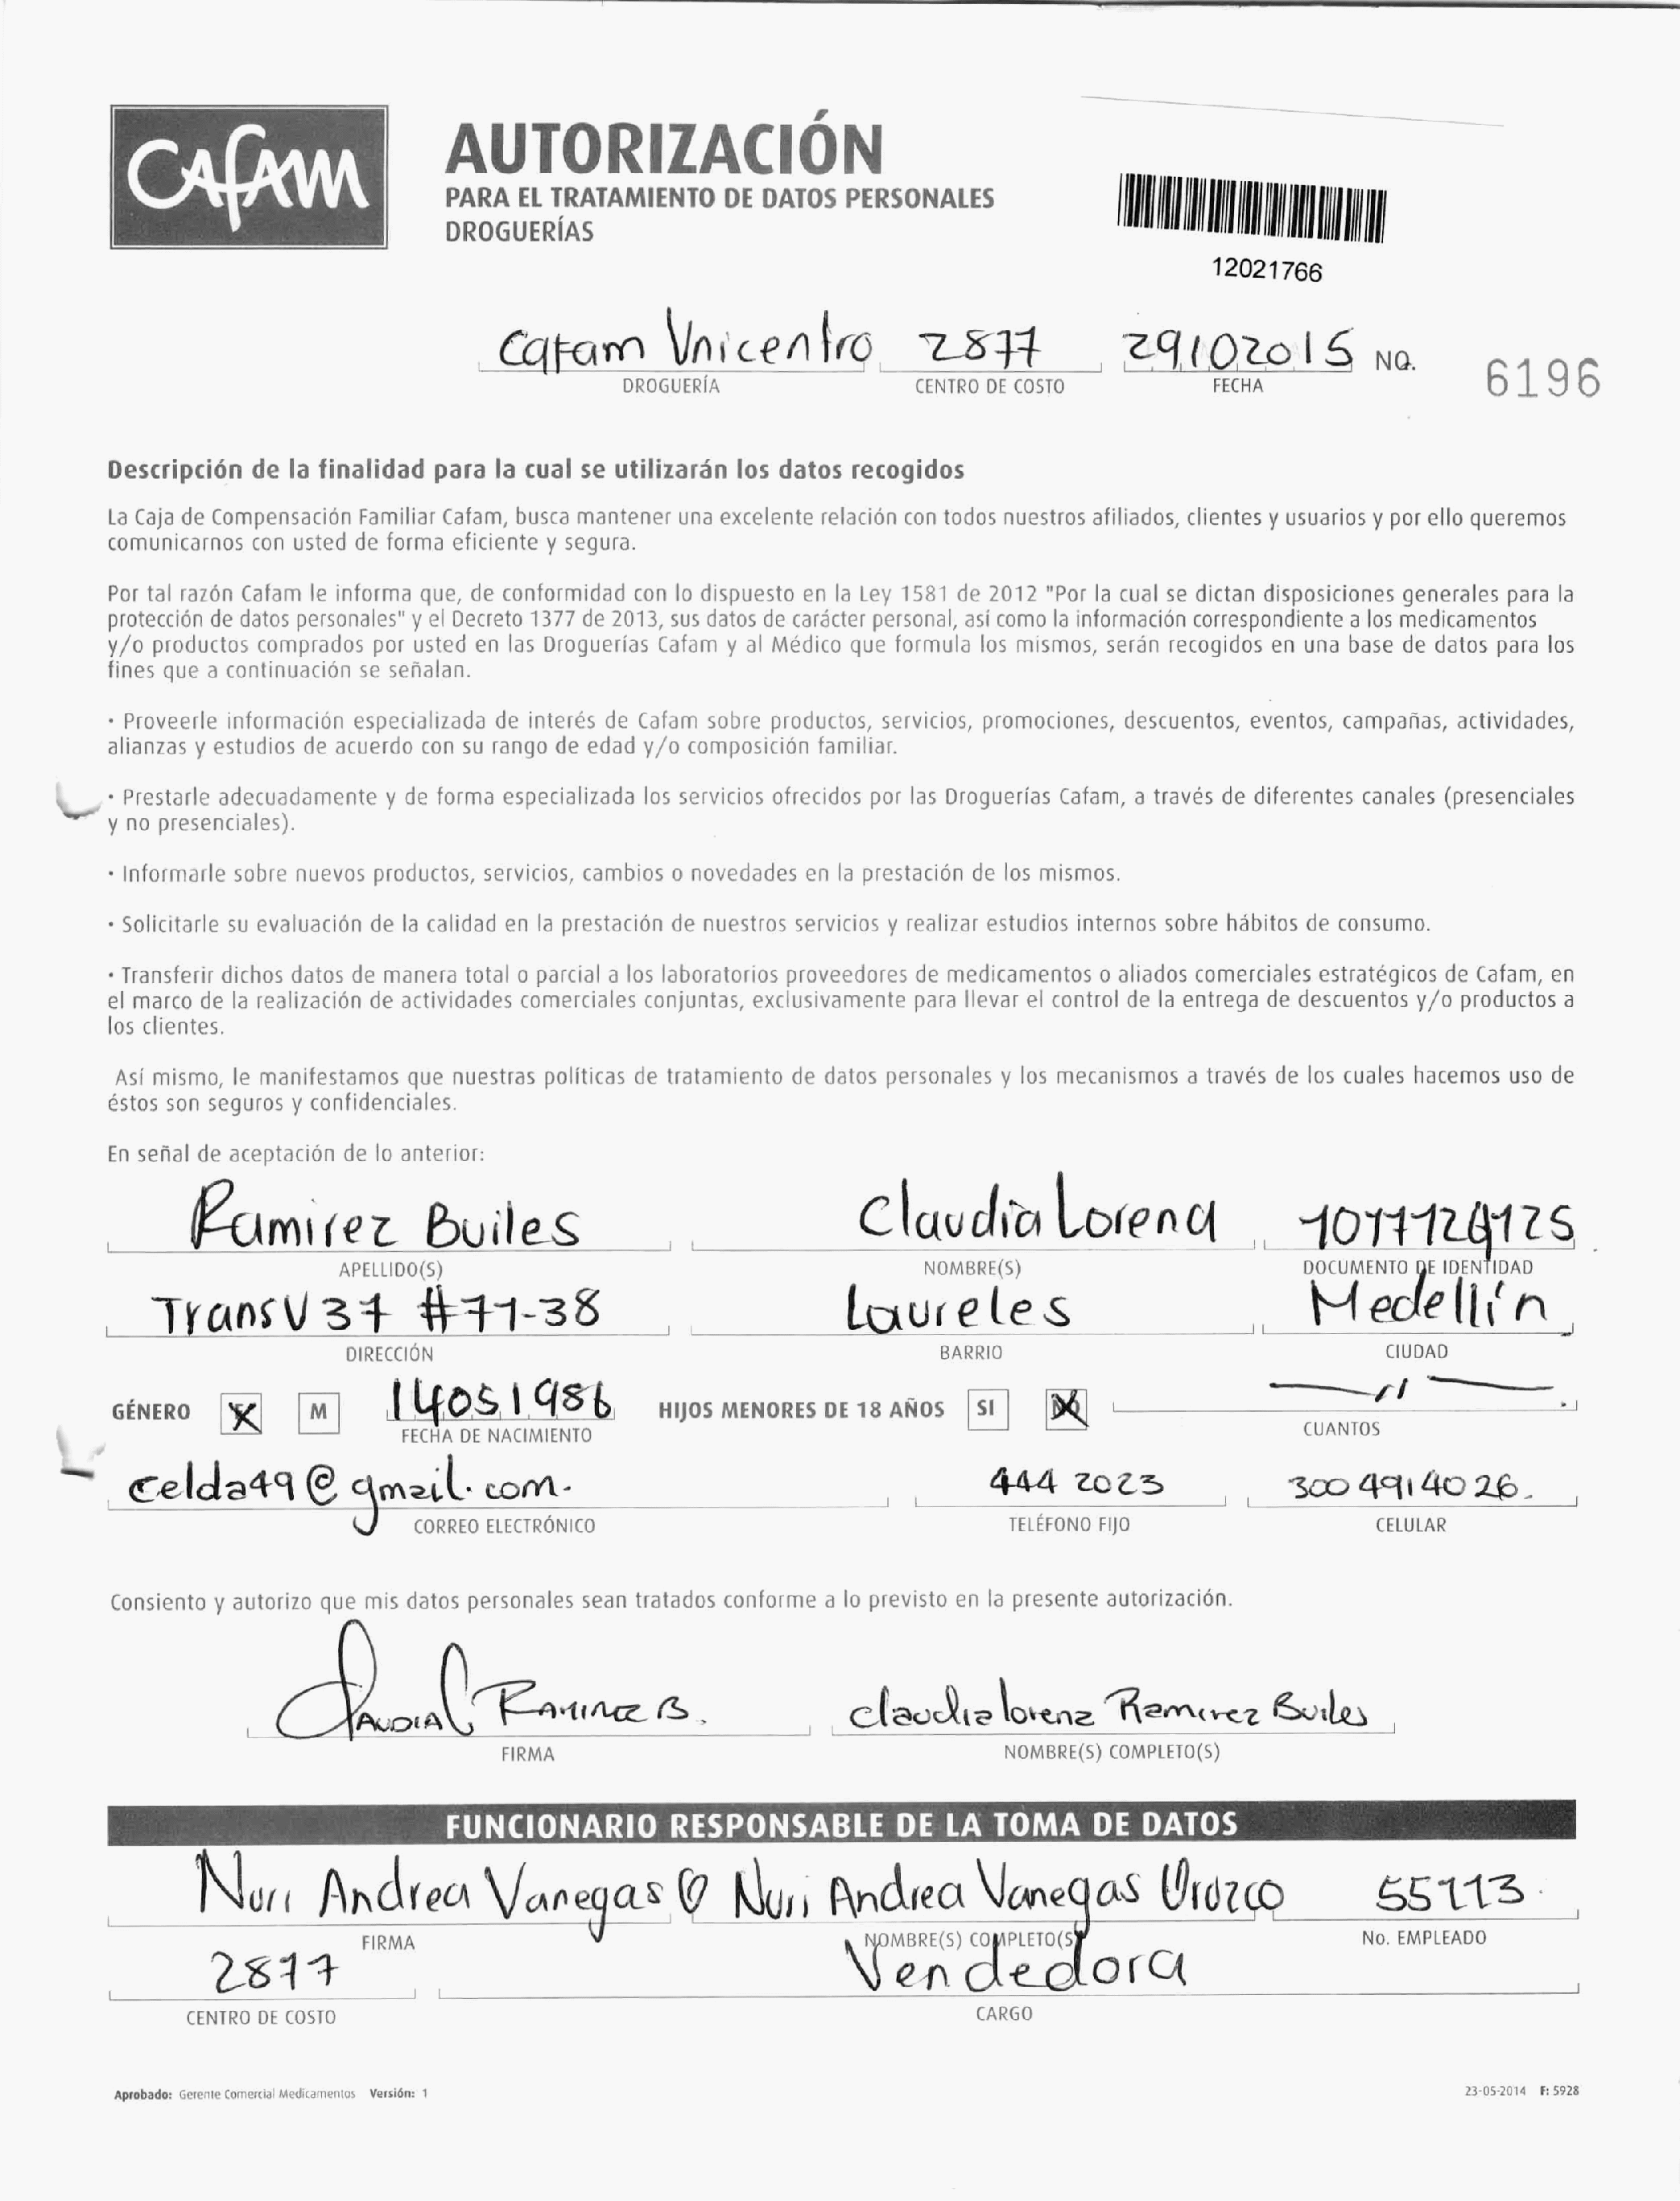 CAFAM
AUTORIZACIÓN
PARA EL TRATAMIENTO DE DATOS PERSONALES
DROGUERÍAS
12021766
Cafam Unicentro 2877 29102015 NO. 6196
DROGUERÍA CENTRO DE COSTO FECHA
Descripción de la finalidad para la cual se utilizarán los datos recogidos
La Caja de Compensación Familiar Cafam, busca mantener una excelente relación con todos nuestros afiliados, clientes y usuarios y por ello queremos
comunicarnos con usted de forma eficiente y segura.
Por tal razón Cafam le informa que, de conformidad con lo dispuesto en la Ley 1581 de 2012 "Por la cual se dictan disposiciones generales para la
protección de datos personales" y el Decreto 1377 de 2013, sus datos de carácter personal, así como la información correspondiente a los medicamentos
y/o productos comprados por usted en las Droguerías Cafam y al Médico que formula los mismos, serán recogidos en una base de datos para los
fines que a continuación se señalan.
· Proveerle información especializada de interés de Cafam sobre productos, servicios, promociones, descuentos, eventos, campañas, actividades,
alianzas y estudios de acuerdo con su rango de edad y/o composición familiar.
· Prestarle adecuadamente y de forma especializada los servicios ofrecidos por las Droguerías Cafam, a través de diferentes canales (presenciales
y no presenciales).
· Informarle sobre nuevos productos, servicios, cambios o novedades en la prestación de los mismos.
· Solicitarle su evaluación de la calidad en la prestación de nuestros servicios y realizar estudios internos sobre hábitos de consumo.
· Transferir dichos datos de manera total o parcial a los laboratorios proveedores de medicamentos o aliados comerciales estratégicos de Cafam, en
el marco de la realización de actividades comerciales conjuntas, exclusivamente para llevar el control de la entrega de descuentos y/o productos a
los clientes.
Así mismo, le manifestamos que nuestras políticas de tratamiento de datos personales y los mecanismos a través de los cuales hacemos uso de
éstos son seguros y confidenciales.
En señal de aceptación de lo anterior:
Ramirez Builes Claudia Lorena
APELLIDO(S) NOMBRE(S) DOCUMENTO DE IDENTIDAD
TransV 37 #71-38 Laureles Medellín
DIRECCIÓN BARRIO CIUDAD
GÉNERO X M 14051986 HIJOS MENORES DE 18 AÑOS SI X
FECHA DE NACIMIENTO CUANTOS
celda49@gmail.com. 444 2023 300 4914026.
CORREO ELECTRÓNICO TELÉFONO FIJO CELULAR
Consiento y autorizo que mis datos personales sean tratados conforme a lo previsto en la presente autorización.
Claudia Ramirez B. Claudia lorena Ramirez Builes
FIRMA NOMBRE(S) COMPLETO(S)
FUNCIONARIO RESPONSABLE DE LA TOMA DE DATOS
Nuri Andrea Vanegas O Nuri Andrea Vanegas Orozco 55113
FIRMA NOMBRE(S) COMPLETO(S) No. EMPLEADO
2877 Vendedora
CENTRO DE COSTO CARGO
Aprobado: Gerente Comercial Medicamentos Versión: 1 23-05-2014 F: 5928